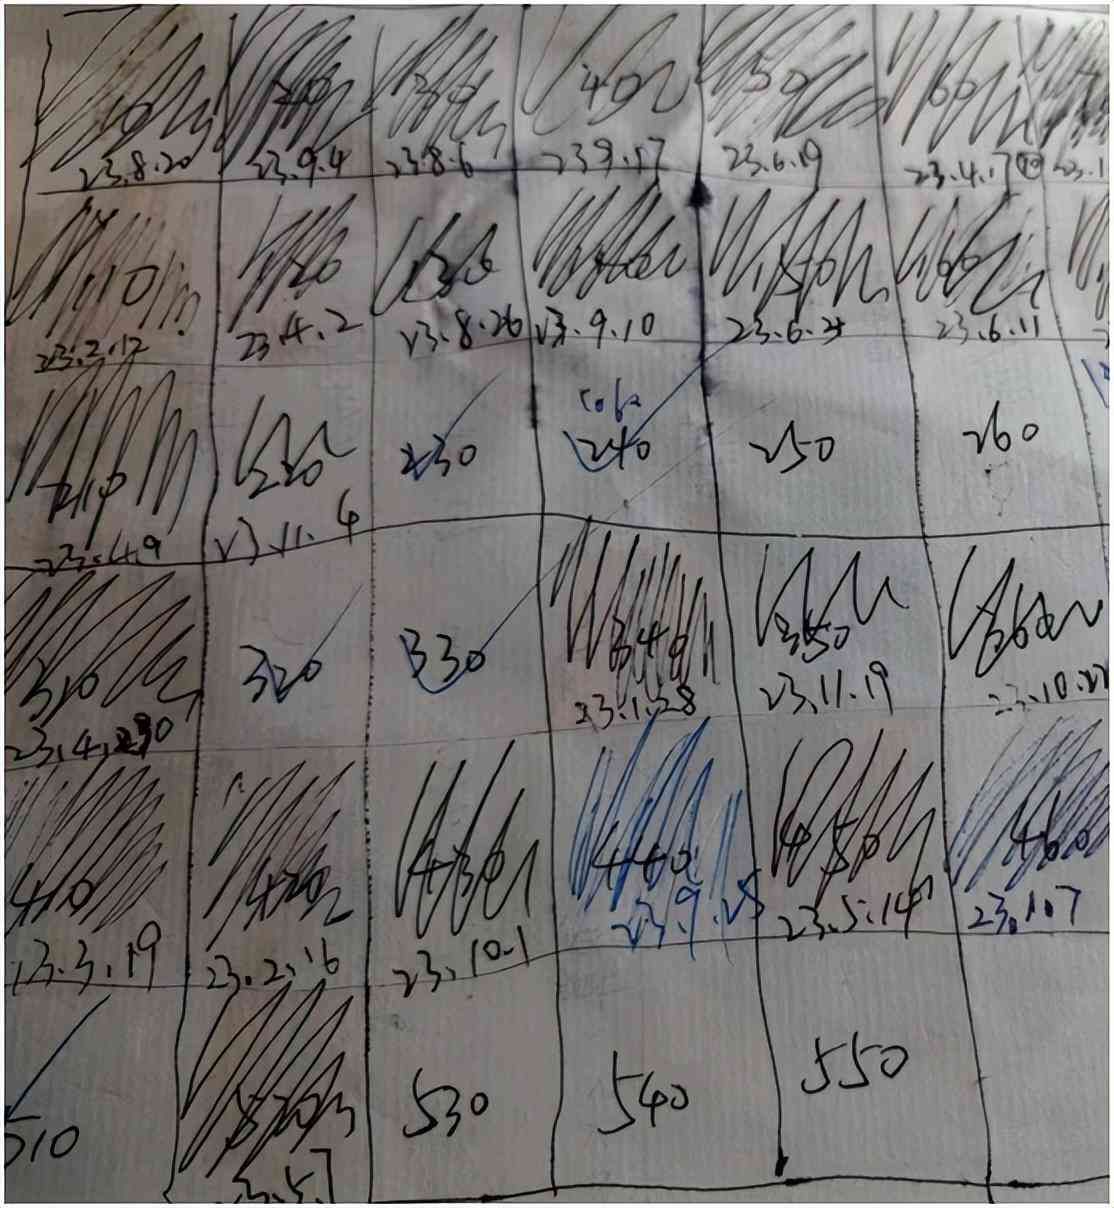 10
20
30
40
50
60
23.8.20
23.9.4
23.8.6
23.9.17
23.6.19
23.4.17
23.1
110
120
130
140
150
160
23.2.12
23.4.2
23.8.26
23.9.10
23.6.11
210
220
230
240
250
260
23.4.9
23.11.4
310
320
330
340
350
360
23.1.28
23.11.19
410
420
430
440
450
460
23.3.19
23.2.16
23.10.1
23.9.25
23.5.14
23.1.7
510
520
530
540
550
3.5.7